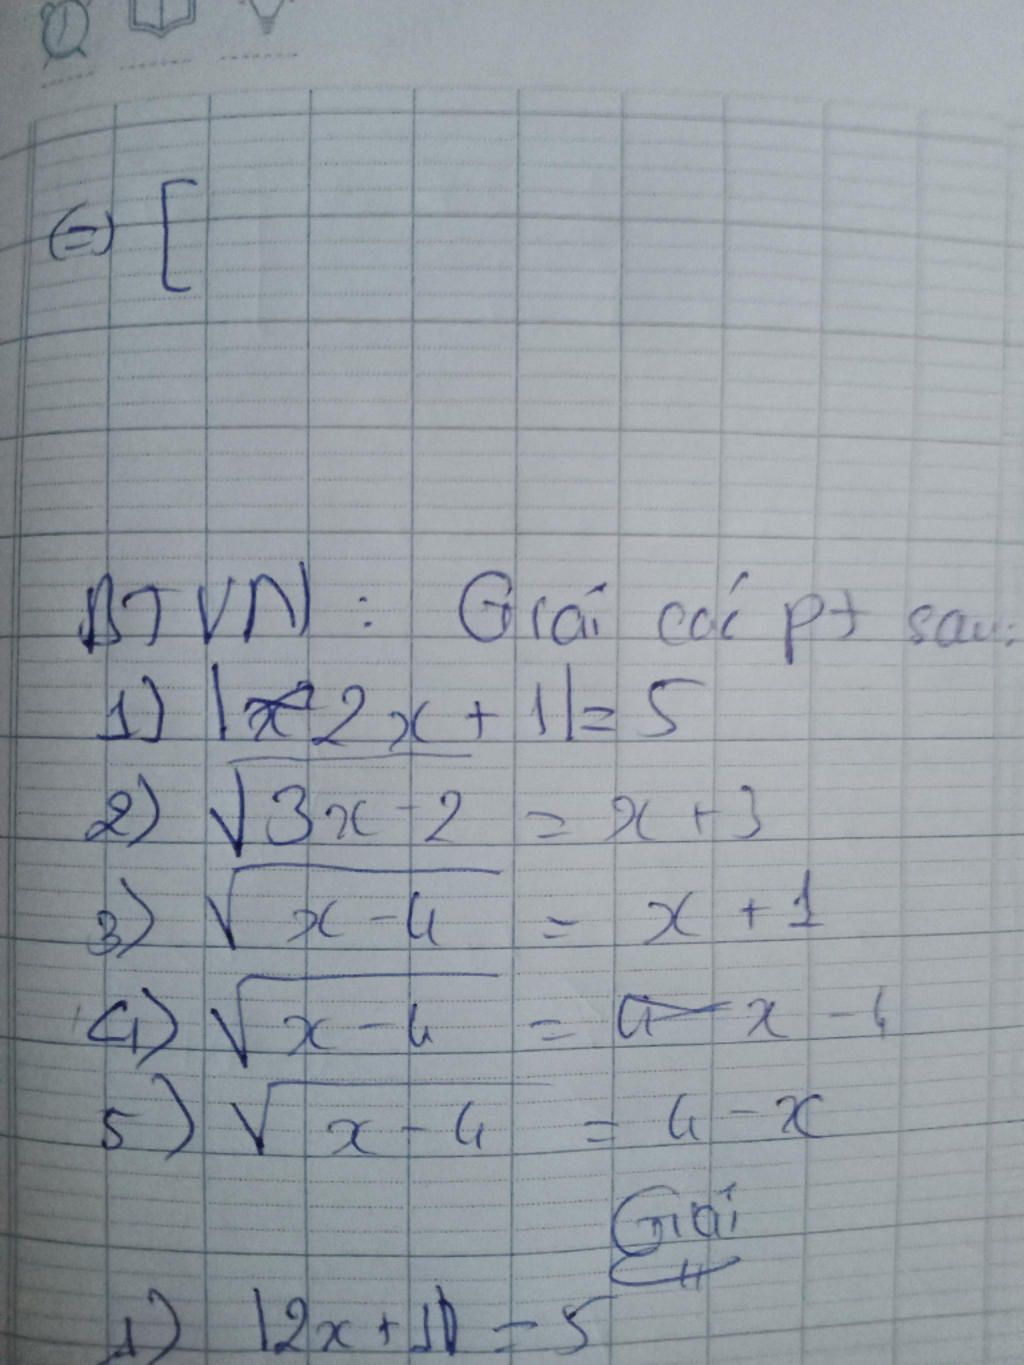 (=) [
BTVN : Giải các pt sau:
1) |2x + 1| = 5
2) √3x - 2 = x + 3
3) √x - 4 = x + 1
4) √x - 4 = x - 4
5) √x - 4 = 4 - x
Giải
1) |2x + 1| = 5